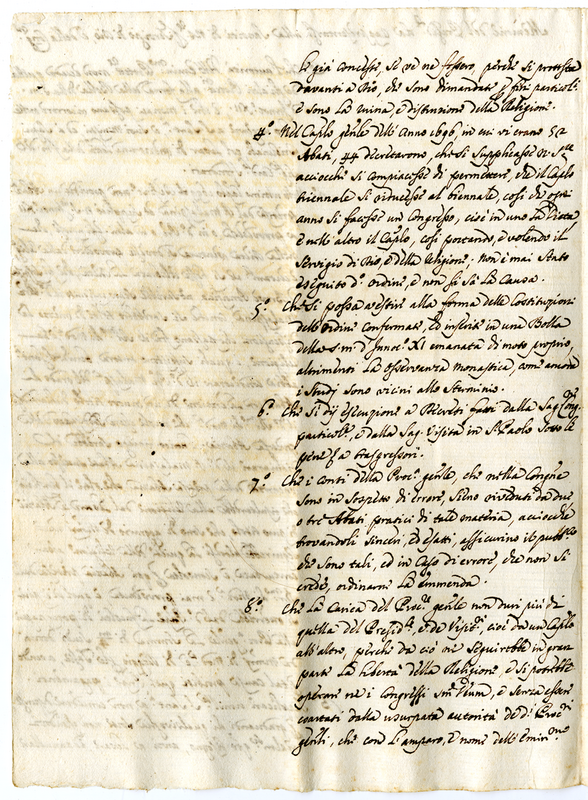 le già concesse, se ve ne fossero, perche si protesta
davanti a Dio, che sono dimandate p fini particol:
e sono la ruina, e distruzione della Religione.
4°. Nel Caplo gnle dell'Anno 1696, in cui vi erano 52
Abati, 44 decretarono, che si supplicasse
acciocche si compiacesse di permettere, che il Caplo
triennale si riducesse al biennale, così che ogni
anno si facesse un Congresso, cioè in uno la Dieta
e nell'altro il Caplo, così portando, e volendo il
servigio di Dio, e della Religione; non è mai stato
eseguito d.° ordine, e non si sà la Causa.
5°. Che si possa vestire alla forma delle Costituzioni
dell'ordine confermate, ed inserite in una Bolla
della s: m: d'Innoc.° XI emanata di moto proprio,
altrimenti la osservanza monastica, come ancora
i studj sono vicini allo sterminio.
6°. Che si dij esecuzione a Decreti fatti dalla Sag. Cong.
particol.e, e dalla Sag. Visita in S. Paolo sotto le
pene a trasgressori.
7°. Che i conti della Proc.a gnle, che nella Congne
sono in sospetto di errore, siano riveduti da due
o tre Abati pratici di tale materia, acciocchè
trovandoli sinceri, ed esatti, assicurino il pubblico
che sono tali, ed in Caso di errore, che non si
crede, ordinarne la emmenda.
8°. Che la Carica del Proc.re gnle non duri più di
quella del Presid.te, e de Visit.ri, cioè da un Caplo
all'altro, perchè da ciò ne seguirebbe in gran
parte la libertà della Religione, e si potrebbe
operare ne i Congressi sm Deum, e senza esser
coartati dalla usurpata autorità de d.i Proc.ri
gnli, che con l'amparo, e nome dell'Emin.mo